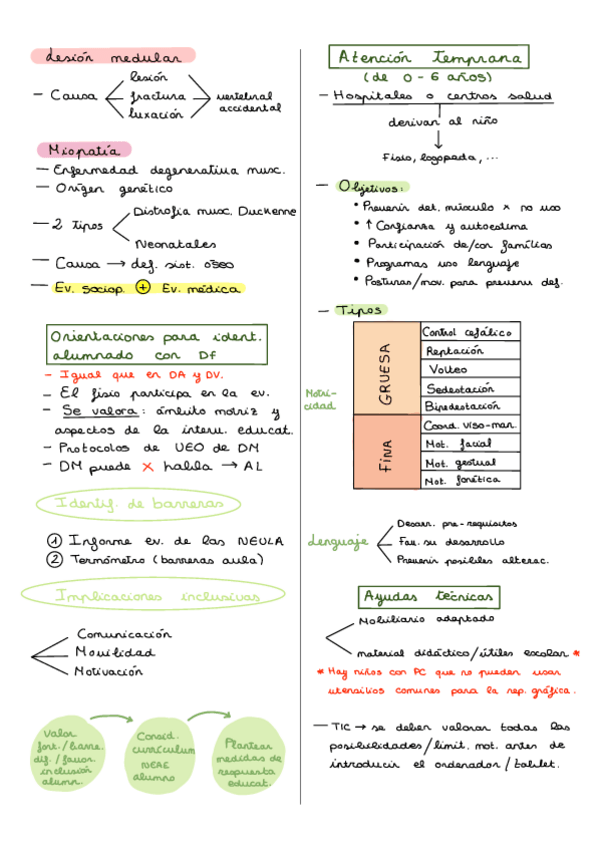 Lesión medular
— Causa
lesión
fractura
luxación
vertebral
accidental
Miopatía
— Enfermedad degenerativa musc.
— Origen genético
— 2 tipos
Distrofia musc. Duckenne
Neonatales
— Causa → def. sist. óseo
— Ev. sociop. + Ev. médica
Orientaciones para ident.
alumnado con Df
— Igual que en DA y DV.
— El fisio participa en la ev.
— Se valora: ámbito motriz y
aspectos de la interv. educat.
— Protocolos de UEO de DM
— DM puede x habla → AL
Identif. de barreras
1 Informe ev. de las NEULA
2 Termómetro (barreras aula)
Implicaciones inclusivas
Comunicación
Movilidad
Motivación
Valor
fort./barre.
dif./favor.
inclusión
alumn.
Consid.
currículum
NEAE
alumno
Plantear
medidas de
respuesta
educat.
Atención Temprana
(de 0-6 años)
— Hospitales o centros salud
derivan al niño
Fisio, logopeda, ...
— Objetivos:
• Prevenir det. músculo x no uso
• ↑ Confianza y autoestima
• Participación de/con familias
• Programas uso lenguaje
• Posturas/mov. para prevenir def.
— Tipos
Motri-
cidad
GRUESA
Control cefálico
Reptación
Volteo
Sedestación
Bipedestación
FINA
Coord. viso-man.
Mot. facial
Mot. gestual
Mot. fonética
Lenguaje
Desarr. pre-requisitos
Fav. su desarrollo
Prevenir posibles alterac.
Ayudas técnicas
Mobiliario adaptado
material didáctico/útiles escolar *
* Hay niños con PC que no pueden usar
utensilios comunes para la rep. gráfica.
— TIC → se deben valorar todas las
posibilidades/limit. mot. antes de
introducir el ordenador/tablet.